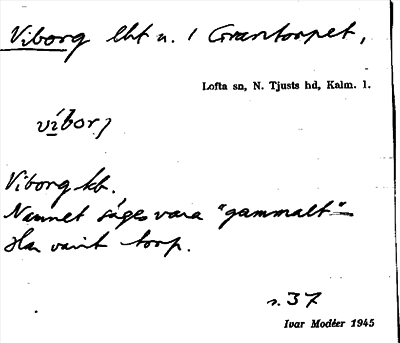 Viborg lht u. / Grantorpet,
Lofta sn, N. Tjusts hd, Kalm. l.
víborj
Viborg kb.
Namnet säges vara "gammalt"
Har varit torp.
s. 37
Ivar Modéer 1945